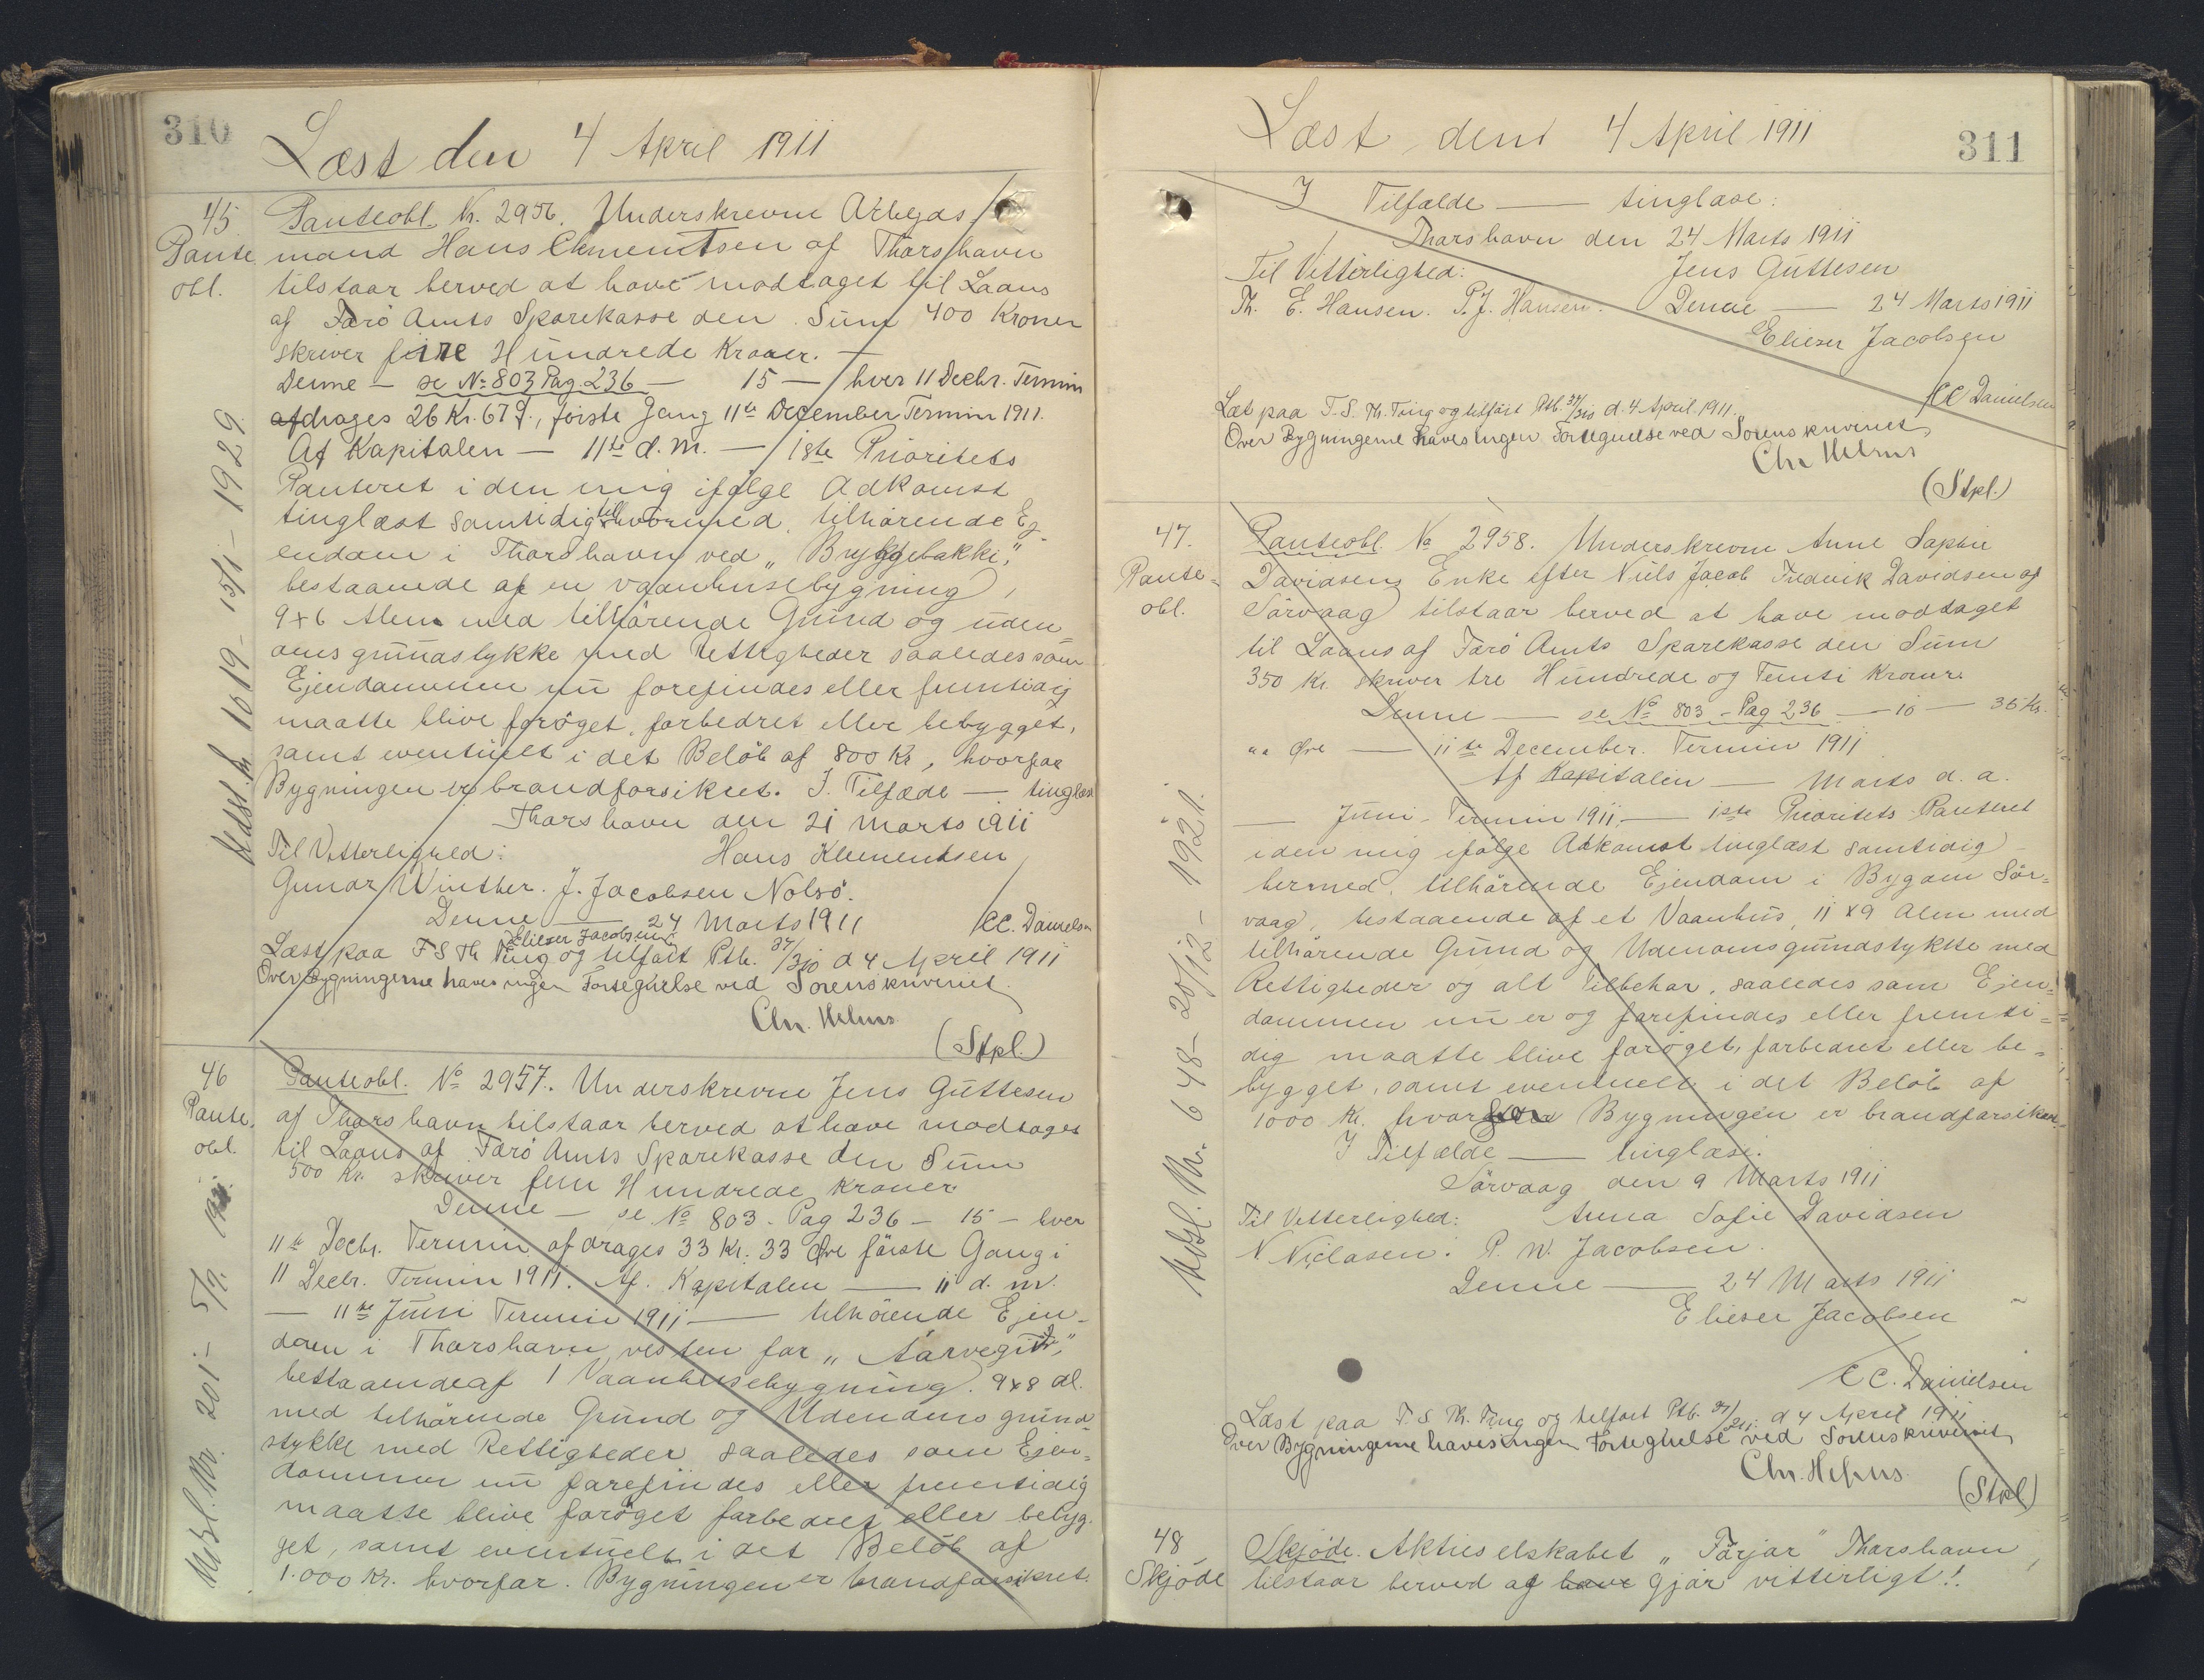 310
Læst den 4 April 1911
45
Pante
obl.
Panteobl. N. 2956. Underskrevne Arbejds
mand Hans Clementsen af Thorshavn
tilstaar herved at have modtaget til Laans
af Færø Amts Sparekasse den Sum 400 Kroner
skriver fire Hundrede Kroner. —
Denne — se No 803 Pag. 236 — 15 — hver 11 Decbr. Termin
afdrages 26 Kr. 67 Ø., første Gang 11te December Termin 1911.
Af Kapitalen — 11te d. M. — 1ste Prioritets
Panteret i den mig ifølge Adkomst
tinglæst samtidig hermed tilhørende Ej
endom i Thorshavn ved „Bryggjubakki",
bestaaende af en Vaanhusebygning,
9 x 6 Alen med tilhørende Grund og uden
oms grundstykke med Rettigheder saaledes som
Ejendommen nu forefindes eller fremtidig
maatte blive forøget, forbedret eller bebygget,
samt eventuelt i det Beløb af 800 Kr, hvorfor
Bygningen er brandforsikret. I Tilfæde — tinglæst
Thorshavn den 21 Marts 1911
Til Vitterlighed: Hans Klementsen
Gunar Winther. J. Jacobsen Nolsø.
Denne — 24 Marts 1911
Elieser Jacobsen CC. Danielsen
Læst paa F S Th Ting og tilført Ptb. 37/310 d 4 April 1911
Over Bygningerne haves ingen Fortegnelse ved Sorenskriveriet.
Chr. Helms
(Stpl.)
Udsl. Nr 1019 - 15/1 - 1929
46
Pante
obl.
Panteobl. No 2957. Underskrevne Jens Guttesen
af Thorshavn tilstaar herved at have modtaget
til Laans af Færø Amts Sparekasse den Sum
500 Kr. skriver fem Hundrede Kroner.
Denne — se No 803 - Pag 236 — 15 — hver
11te Decbr. Termin afdrages 33 Kr. 33 Øre første Gang i
11 Decbr. Termin 1911. Af Kapitalen — 11 d. m.
— 11te Juni Termin 1911 — tilhørende Ejen-
dom i Thorshavn vesten for „
bestaaende af 1 Vaanhusebygning. 9 x 8 Al.
med tilhørende Grund og Udenoms grund
stykke med Rettigheder saaledes som Ejen=
dommen nu forefindes eller fremtidig
maatte blive forøget forbedret eller bebyg.
get, samt eventuelt i det Beløb af
1.000 Kr. hvorfor Bygningen er brandforsikret.
Udsl. Nr. 201 - 5/9
Læst den 4 April 1911
311
I Tilfælde — tinglæse:
Thorshavn den 24 Marts 1911
Til Vitterlighed: Jens Guttesen
Th. E. Hansen. P. J. Hansen. Denne — 24 Marts 1911
Elieser Jacobsen
CC Danielsen
Læst paa F. S. Th. Ting og tilført Ptb. 37/310 d. 4 April 1911.
Over Bygningerne haves ingen Fortegnelse ved Sorenskriveriet
Chr Helms
(Stpl.)
47.
Pante=
obl.
Panteobl. No 2958. Underskrevne Anne Sophie
Davidsen, Enke efter Niels Jacob Frederik Davidsen af
Sørvaag tilstaar herved at have modtaget
til Laans af Færø Amts Sparekasse den Sum
350 Kr. skriver tre Hundrede og Femti Kroner.
Denne — se No 803 - Pag 236 — 10 — 35 Kr.
„ „ Øre — 11te December. Termin 1911
Af Kapitalen — Marts d. a.
— Juni - Termin 1911. — 1ste Prioritets Panteret
i den mig ifølge Adkomst tinglæst samtidig
hermed, tilhørende Ejendom i Bygden Sør=
vaag, bestaaende af et Vaanhus, 11 x 9 Alen med
tilhørende Grund og Udenomsgrundstykke med
Rettigheder og alt Tilbehør, saaledes som Ejen=
dommen nu er og forefindes eller fremti=
dig maatte blive forøget, forbedret eller be=
bygget, samt eventuelt i det Beløb af
1000 Kr. hvorfor Bygningen er brandforsikret.
I Tilfælde — tinglæse.
Sørvaag den 9 Marts 1911
Til Vitterlighed: Anna Sofie Davidsen
N Niclasen. P. W. Jacobsen.
Denne — 24 Marts 1911
Elieser Jacobsen
CC. Danielsen
Læst paa F. S. Th. Ting og tilført Ptb. 37/311 d 4 April 1911
Over Bygningerne haves ingen Fortegnelse ved Sorenskriveriet
Chr. Helms
(Stpl)
Udsl. Nr. 648 - 20/12 - 1921.
48
Skjøde
Skjøde. Aktieselskabet „Førjar" Thorshavn,
tilstaar herved og have gjør vitterligt!